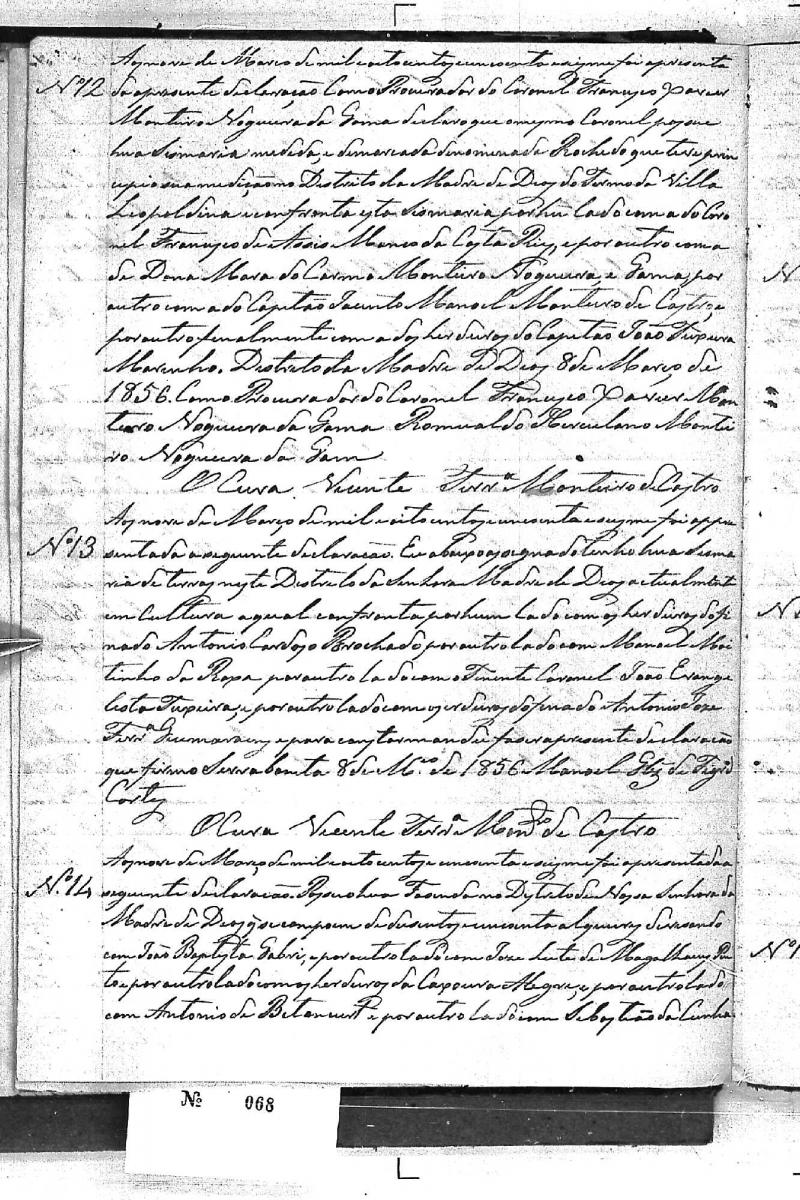 Aos nove de Março de mil e oito centos e sincoenta e seis me foi apresenta
Nº 12 da a presente declaração Como Procurador do Coronel Francisco Xavier
Monteiro Nogueira da Gama declaro que o mesmo Coronel possue
hua Sismaria medida, e demarcada denominada Rochedo que teve prin
cipio sua medição no Destrito da Madre de Deos do Termo da Villa
Leopoldina e confronta esta Sismaria por hú lado com a do Coro
nel Francisco de Assis Manco da Costa Reis, e por outro com a
de Dona Mara do Carmo Monteiro Nogueira, e Gama, por
outro com a do Capitão Jacinto Manoel Monteiro de Castro, e
por outro finalmente com a dos herdeiros do Capitão João Teixeira
Marinho. Destrito da Madre de Deos 8 de Março de
1856. Como Procurador do Coronel Francisco Xavier Mon
teiro Nogueira da Gama Romualdo Herculano Montei
ro Nogueira da Gam
O Cura Vicente Ferrª Monteiro de Castro
Aos nove de Março de mil e oito centos e sincoenta e seis me foi appre
Nº 13 sentada a seguinte declaração. Eu abaixo assegnado tenho hua Sisma
ria de terras neste Destrito da Senhora Madre de Deos actualment
em Cultura a qual confronta por hum lado com os herdeiros do fi
nado Antonio Cardozo Brochado por outro lado com Manoel Moi
tinho da Roza por outro lado com o Tinente Coronel João Evange
lista Teixeira, e por outro lado com os erdeiros do finado Antonio Joze
Ferrª Guimaraens, e para constar mandei faser a presente declaração
que firmo Serra bonita 8 de Mço de 1856 Manoel de Figrdo
Cortes
O Cura Vicente Ferrª Monro de Castro
Aos nove de Março de mil e oito centos e sincoenta e seis me foi apresentada a
Nº 14 seguinte declaração. Possuo hua Fasenda no Destrito de Nossa Senhora da
Madre de Deos q se compoem de dusentos e sincoenta alqueires devesando
com João Baptista Gabri, e por outro lado com Joze Leite de Magalhaens Pin
to e por outro lado com os herdeiros da Capoeira Alegre, e por outro lado
com Antonio de Betancurt e por outro lado com Sebastião da Cunha
Nº 068